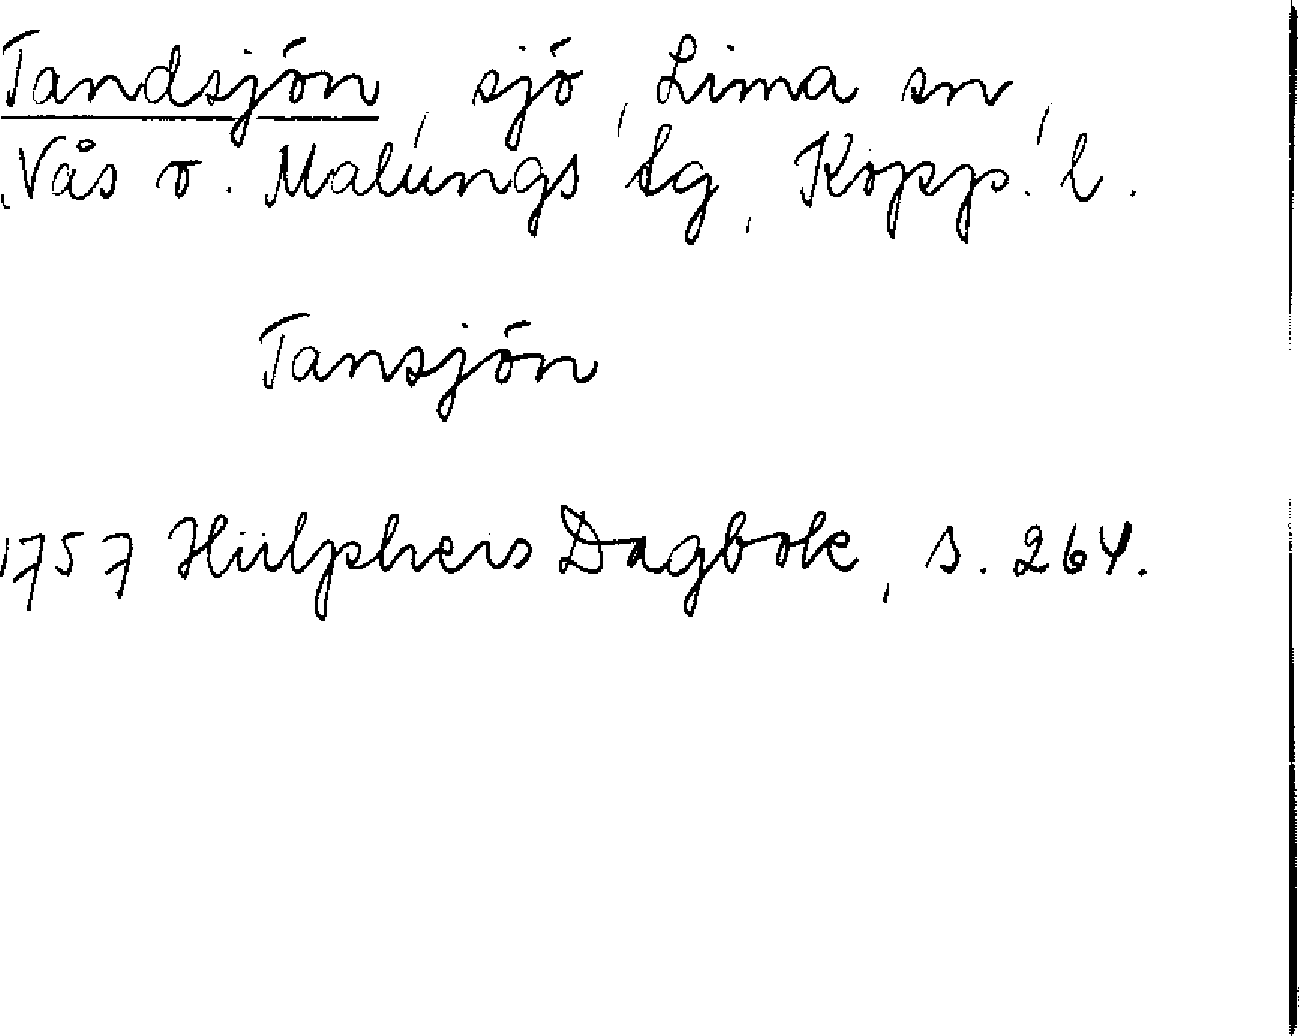 Tandsjön, sjö, Lima sn,
Vås o. Malungs tg, Kopp. l.
Tansjön
1757 Hülphers Dagbok, s. 264.